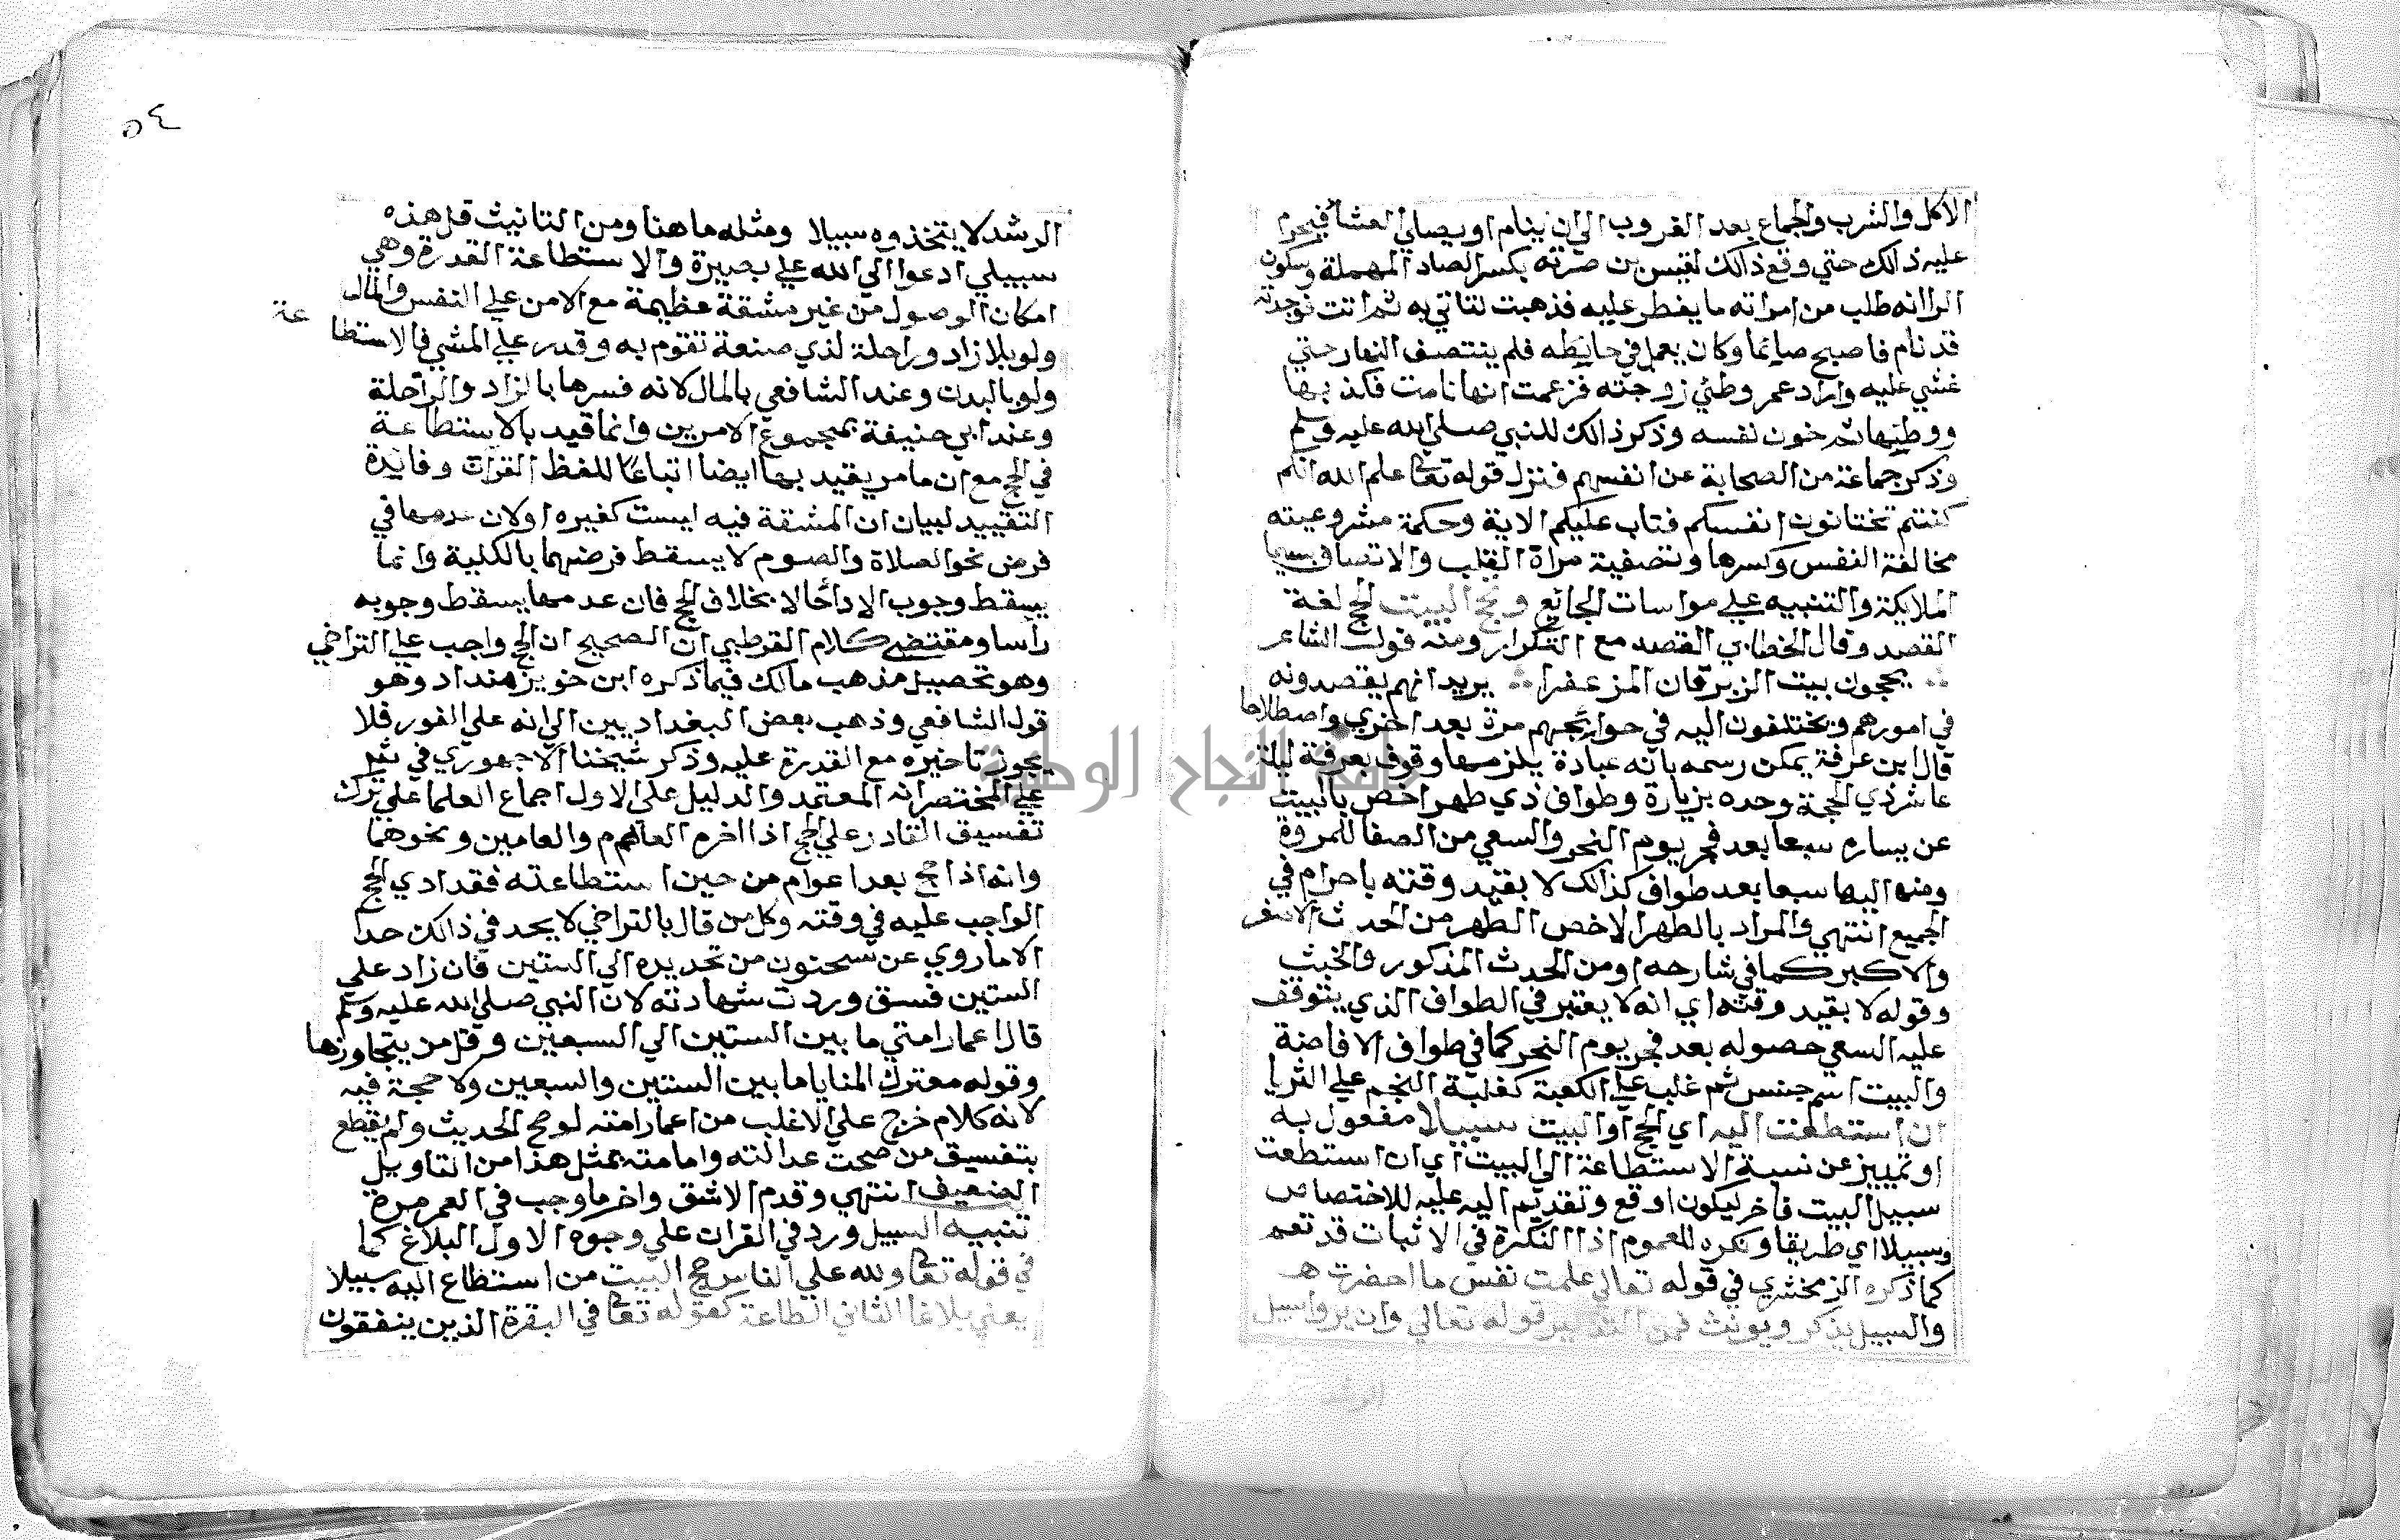 الاكل والشرب والجماع بعد الغروب الي ان ينام او يصلي العشا فيحرم
عليه ذالك حتي وقع ذالك لقيس بن صرته بكسر الصاد المهملة وسكون
الرا انه طلب من امراته ما يفطر عليه فذهبت لتاتي به ثم اتت فوجدته
قد نام فاصبح صايما وكان يعمل في حايطه فلم ينتصف النهار حتي
غشي عليه واراد عمر وطئي زوجته فزعمت انها نامت فكذبها
ووطيها ثم خون نفسه وذكر ذالك للنبي صلي الله عليه وسلم
وذكر جماعة من الصحابة عن انفسهم فنزل قوله تعا علم الله انكم
كنتم تختانون انفسكم فتاب عليكم الاية وحكمة مشروعيته
مخالفة النفس وكسرها وتصفية مراة القلب والاتصاف بسيما
الملايكة والتنبيه علي مواسات الجايع وتحج البيت الحج لغة
القصد وقال الخطابي القصد مع التكرار ومنه قول الشاعر
يحجون بيت الزبرقان المزعفرا يريد انهم يقصدونه
في امورهم ويختلفون اليه في حوايجهم مرة بعد اخري واصطلاحا
قال ابن عرفة يمكن رسمه بانه عبادة يلزمها وقوف بعرفة ليلة
عاشر ذي الحجة وحده بزيارة وطواف ذي طهر اخص بالبيت
عن يساره سبعا بعد فجر يوم النحر والسعي من الصفا للمروة
ومنها اليها سبعا بعد طواف كذالك لا بقيد وقته باحرام في
الجميع انتهي والمراد بالطهر الاخص الطهر من الحدث الاصغر
والاكبر كما في شارحه او من الحدث المذكور والخبث
وقوله لا بقيد وقته اي انه لا يعتبر في الطواف الذي يتوقف
عليه السعي حصوله بعد فجر يوم النحر كما في طواف الافاضة
والبيت اسم جنس ثم غلب علي الكعبة كغلبة النجم علي الثريا
ان استطعت اليه اي الحج او البيت سبيلا مفعول به
او تمييز عن نسبة الاستطاعة الي البيت اي ان استطعت
سبيل البيت فاخر ليكون اوقع وتقديم اليه عليه للاختصاص
وسبيلا اي طريقا ونكره للعموم اذا النكرة في الاثبات قد تعم
كما ذكره الزمخشري في قوله تعالي علمت نفس ما احضرت هـ
والسبيل يذكر ويونث فمن التذكير قوله تعالي وان يروا سبيل
الرشد
٥٤
الرشد لا يتخذوه سبيلا ومثله ما هنا ومن التانيث قل هذه
سبيلي ادعوا الي الله علي بصيرة والاستطاعة القدرة وهي
امكان الوصول من غير مشقة عظيمة مع الامن علي النفس والمال
ولو بلا زاد وراحلة لذي صنعة تقوم به وقدر علي المشي فالاستطاعة
ولو بالبدن وعند الشافعي بالمال لانه فسرها بالزاد والراحلة
وعند ابي حنيفة بمجموع الامرين وانما قيد بالاستطاعة
في الحج مع ان ما مر يقيد بها ايضا اتباعا للفظ القران وفايدة
التقييد لبيان ان المشقة فيه ليست كغيره او لان عدمها في
فرض نحو الصلاة والصوم لا يسقط فرضهما بالكلية وانما
يسقط وجوب الاداحالا بخلاف الحج فان عدمها يسقط وجوبه
رأسا ومقتضي كلام القرطبي ان الصحيح ان الحج واجب علي التراخي
وهو تحصيل مذهب مالك فيما ذكره ابن خويز منداد وهو
قول الشافعي وذهب بعض البغداديين الي انه علي الفور فلا
يجوز تاخيره مع القدرة عليه وذكر شيخنا الاجهوري في
علي المختصر انه المعتمد والدليل علي الاول اجماع العلما علي ترك
تفسيق القادر علي الحج اذا اخره العام والعامين ونحوهما
وانه اذا حج بعد اعوام من حين استطاعته فقد ادي الحج
الواجب عليه في وقته وكل من قال بالتراخي لا يحد في ذالك حدا
الا ما روي عن سحنون من تحديده الي الستين فان زاد علي
الستين فسق وردت شهادته لان النبي صلي الله عليه وسلم
قال اعمار امتي ما بين الستين الي السبعين وقل من يتجاوزها
وقوله معترك المنايا ما بين الستين والسبعين ولا حجة فيه
لانه كلام خرج علي الاغلب من اعمار امته لو صح الحديث ولم يقطع
بتفسيق من صحت عدالته وامامته بمثل هذا من التاويل
الضعيف انتهي وقدم الاشق واخر ما وجب في العمر مرة
تنبيه السبيل ورد في القران علي وجوه الاول البلاغ كما
في قوله تعا ولله علي الناس حج البيت من استطاع اليه سبيلا
يعني بلاغا الثاني الطاعة كقوله تعا في البقرة الذين ينفقون
جامعة النجاح الوطنية